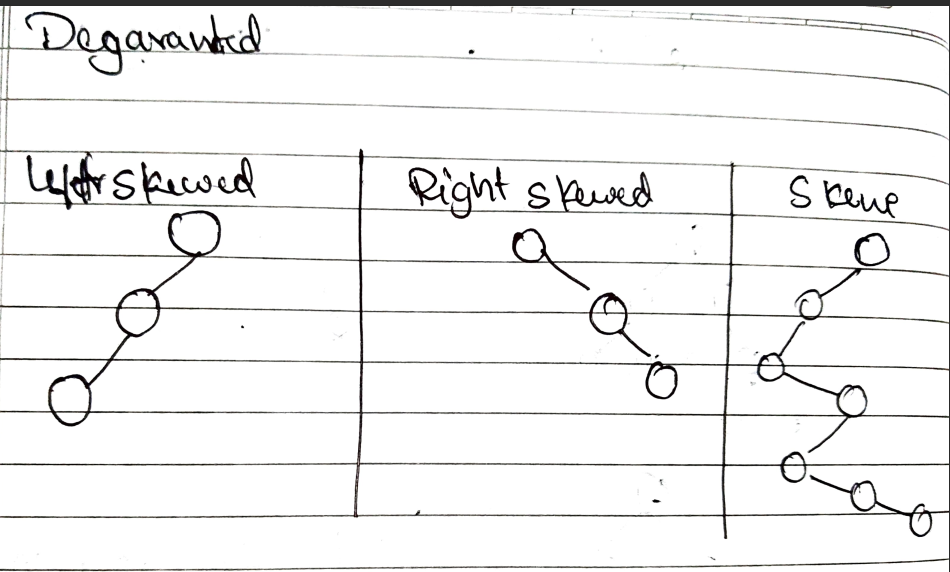 Degaranted
Left skewed
Right skewed
Skew